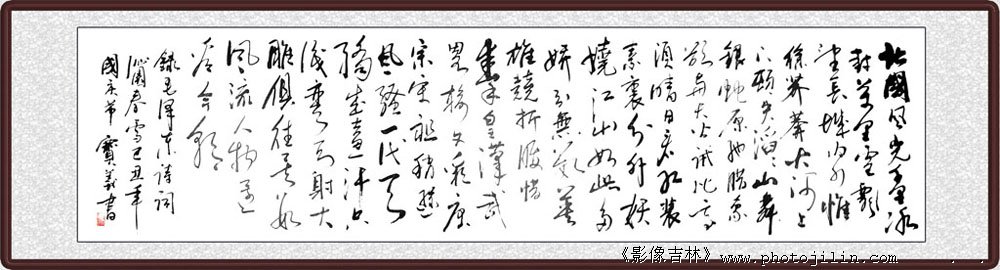 北國风光千里冰
封萬里雪飄
望長城内外惟
餘莽莽大河上
下頓失滔滔山舞
銀蛇原馳臘象
欲與天公試比高
須晴日看红装
素裹分外妖
嬈江山如此多
嬌引無數英
雄競折腰惜
秦皇漢武
略輸文采唐
宗宋祖稍遜
风騷一代天
驕成吉思汗只
識彎弓射大
雕俱往矣數
风流人物還
看今朝
錄毛澤東詩詞
沁園春雪己丑年
國庆节 寶義書
《影像吉林》
www.photojilin.com